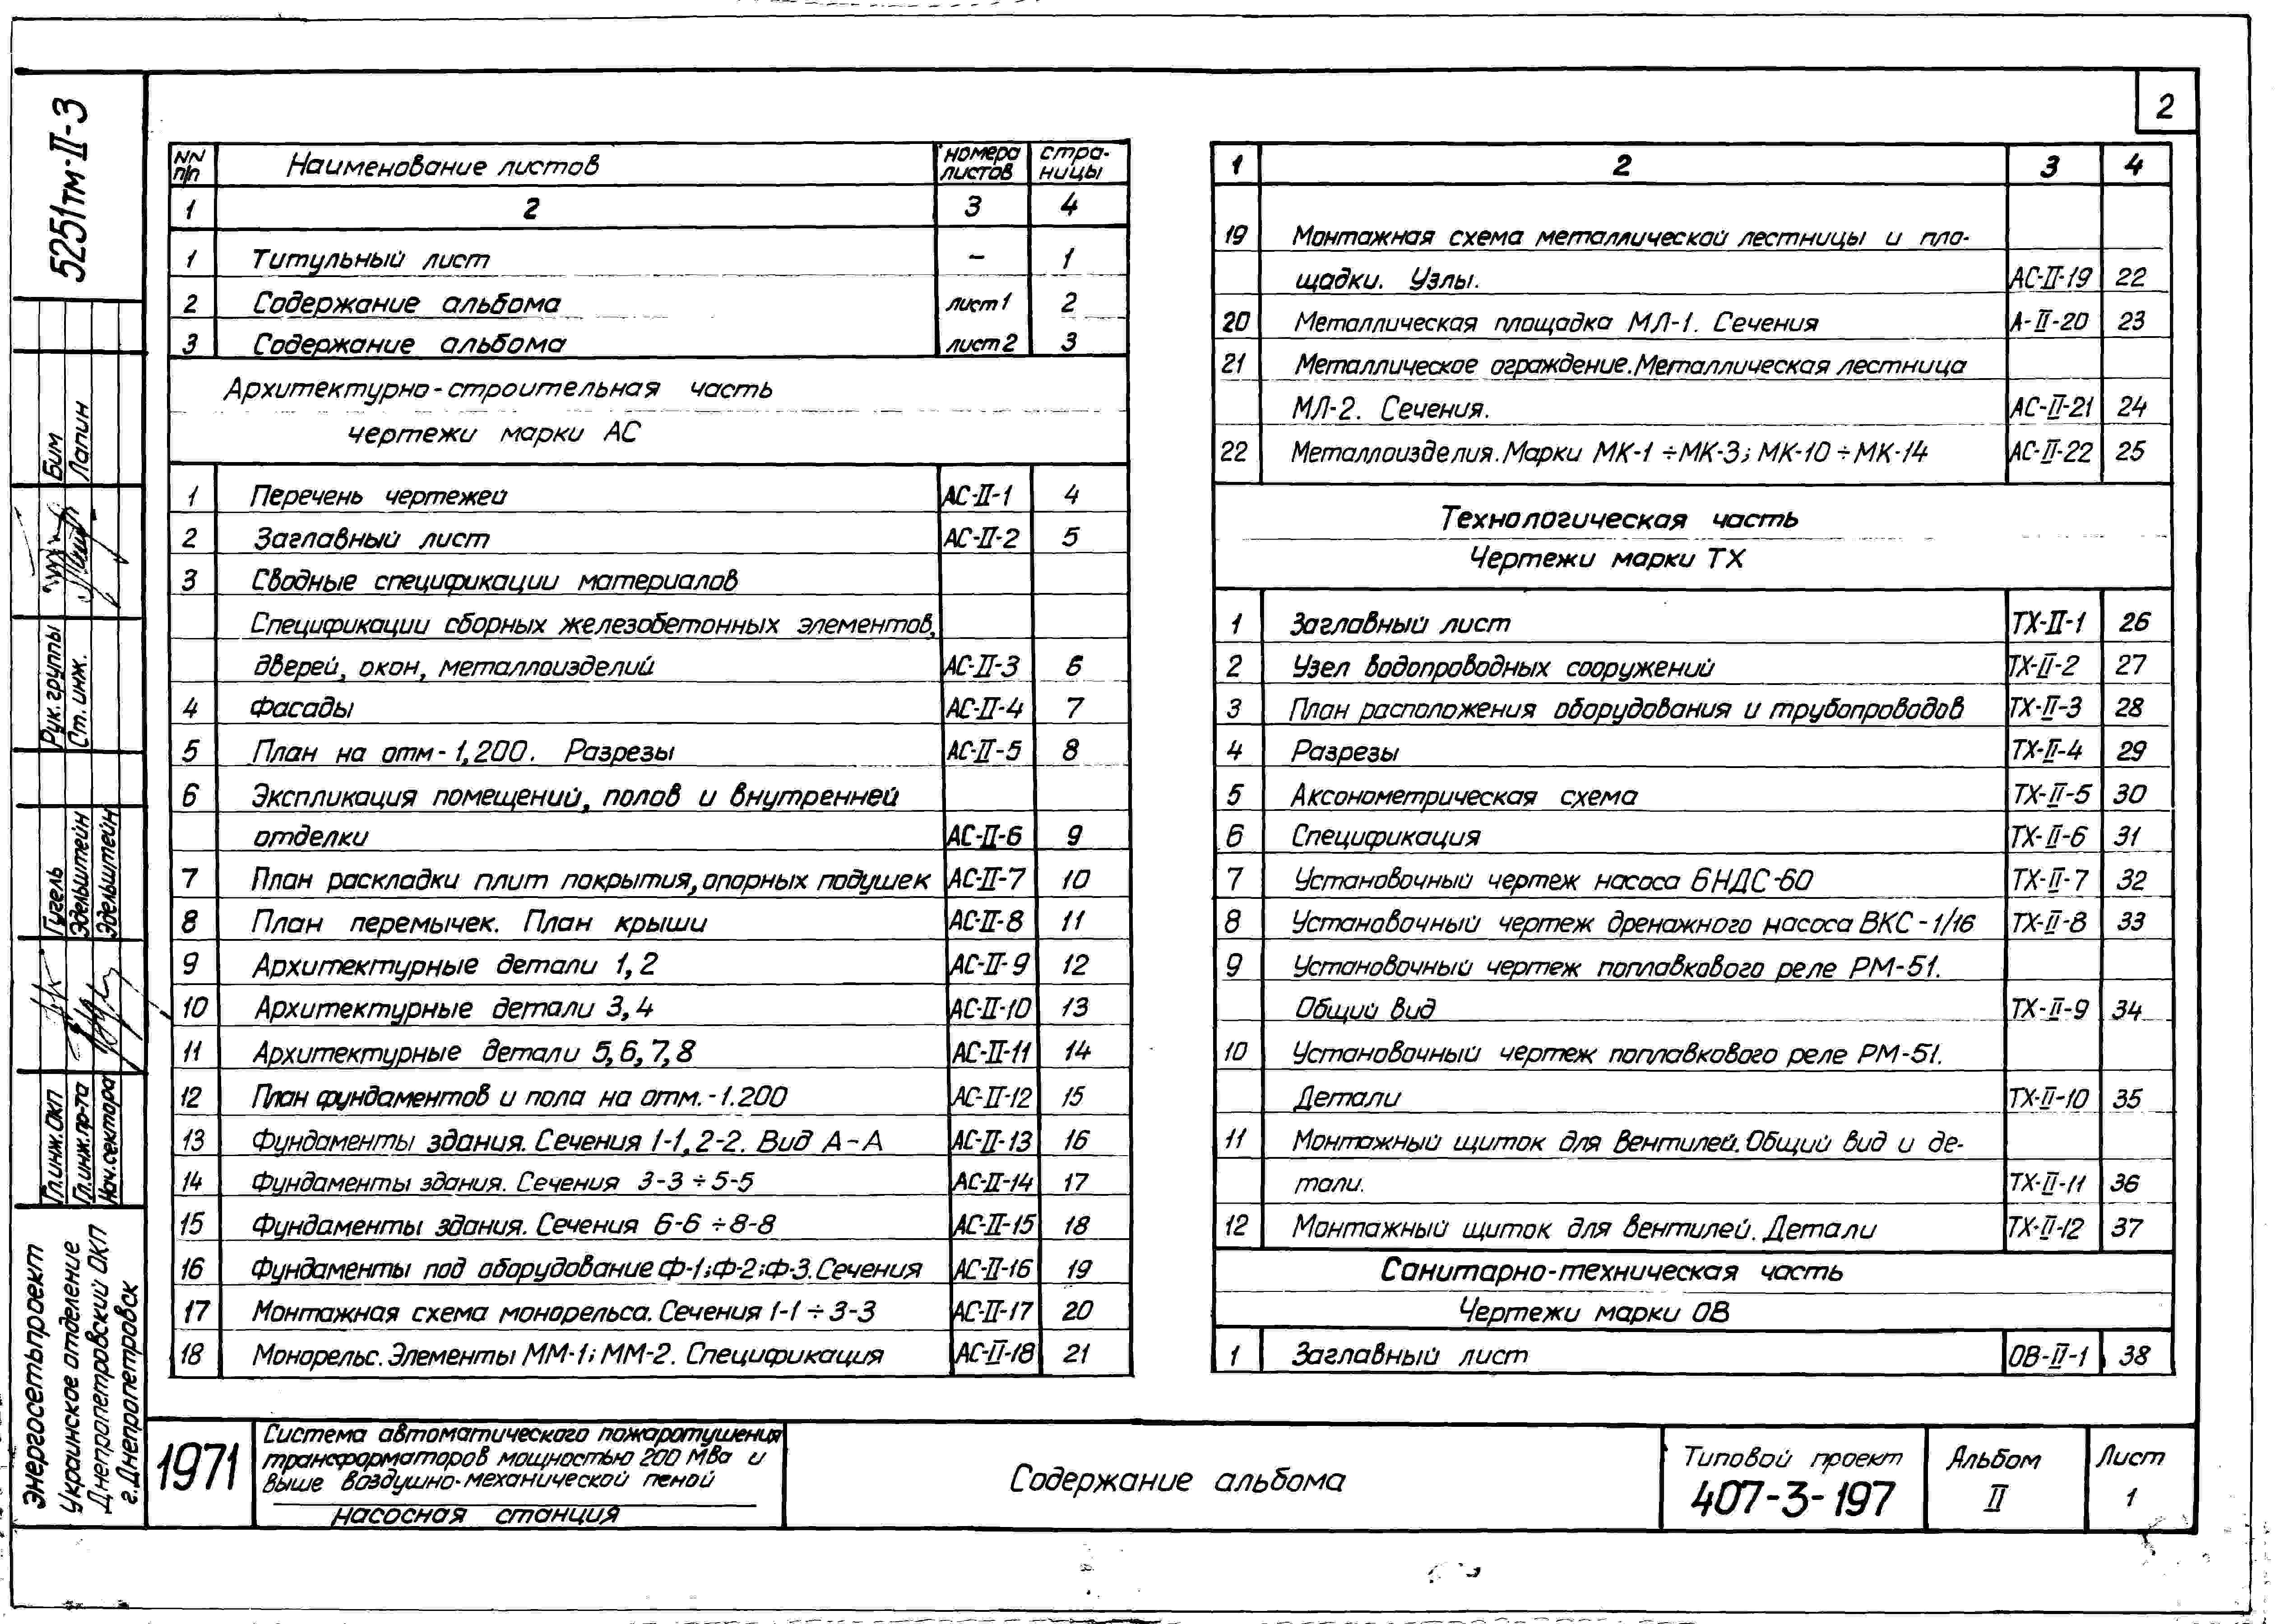 2
5251тм-II-3
NN п/п Наименование листов номера листов стра-ницы
1 2 3 4
1 Титульный лист – 1
2 Содержание альбома лист 1 2
3 Содержание альбома лист 2 3
Архитектурно-строительная часть
чертежи марки АС
1 Перечень чертежей АС-II-1 4
2 Заглавный лист АС-II-2 5
3 Сводные спецификации материалов
Спецификации сборных железобетонных элементов,
дверей, окон, металлоизделий АС-II-3 6
4 Фасады АС-II-4 7
5 План на отм-1,200. Разрезы АС-II-5 8
6 Экспликация помещений, полов и внутренней
отделки АС-II-6 9
7 План раскладки плит покрытия, опорных подушек АС-II-7 10
8 План перемычек. План крыши АС-II-8 11
9 Архитектурные детали 1,2 АС-II-9 12
10 Архитектурные детали 3,4 АС-II-10 13
11 Архитектурные детали 5,6,7,8 АС-II-11 14
12 План фундаментов и пола на отм.-1.200 АС-II-12 15
13 Фундаменты здания. Сечения 1-1, 2-2. Вид А-А АС-II-13 16
14 Фундаменты здания. Сечения 3-3÷5-5 АС-II-14 17
15 Фундаменты здания. Сечения 6-6÷8-8 АС-II-15 18
16 Фундаменты под оборудование Ф-1; Ф-2; Ф-3. Сечения АС-II-16 19
17 Монтажная схема монорельса. Сечения 1-1÷3-3 АС-II-17 20
18 Монорельс. Элементы ММ-1; ММ-2. Спецификация АС-II-18 21
1 2 3 4
19 Монтажная схема металлической лестницы и пло-
щадки. Узлы. АС-II-19 22
20 Металлическая площадка МЛ-1. Сечения А-II-20 23
21 Металлическое ограждение. Металлическая лестница
МЛ-2. Сечения. АС-II-21 24
22 Металлоизделия. Марки МК-1÷МК-3; МК-10÷МК-14 АС-II-22 25
Технологическая часть
Чертежи марки ТХ
1 Заглавный лист ТХ-II-1 26
2 Узел водопроводных сооружений ТХ-II-2 27
3 План расположения оборудования и трубопроводов ТХ-II-3 28
4 Разрезы ТХ-II-4 29
5 Аксонометрическая схема ТХ-II-5 30
6 Спецификация ТХ-II-6 31
7 Установочный чертеж насоса 6НДС-60 ТХ-II-7 32
8 Установочный чертеж дренажного насоса ВКС-1/16 ТХ-II-8 33
9 Установочный чертеж поплавкового реле РМ-51.
Общий вид ТХ-II-9 34
10 Установочный чертеж поплавкового реле РМ-51.
Детали ТХ-II-10 35
11 Монтажный щиток для вентилей. Общий вид и де-
тали. ТХ-II-11 36
12 Монтажный щиток для вентилей. Детали ТХ-II-12 37
Санитарно-техническая часть
Чертежи марки ОВ
1 Заглавный лист ОВ-II-1 38
Рук. группы Бим
Ст. инж. Лапин
Гл. инж. ОКП Гугель
Гл. инж. пр-та Эдельштейн
Нач. сектора Эдельштейн
Энергосетьпроект
Украинское отделение
Днепропетровский ОКП
г. Днепропетровск
1971
Система автоматического пожаротушения
трансформаторов мощностью 200 МВа и
выше воздушно-механической пеной
насосная станция
Содержание альбома
Типовой проект
407-3-197
Альбом
II
Лист
1